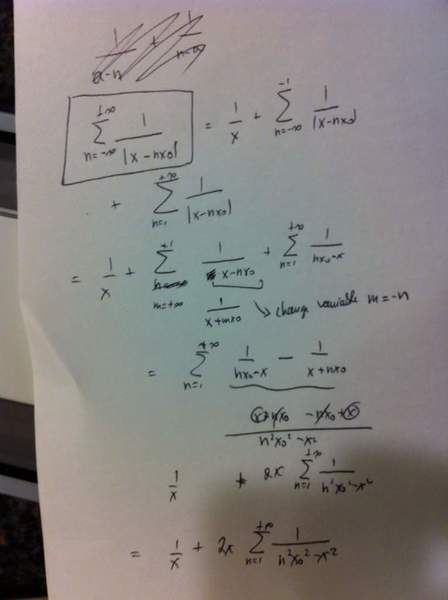 \sum_{n=-\infty}^{+\infty} \frac{1}{|x-nx_0|} = \frac{1}{x} + \sum_{n=-\infty}^{-1} \frac{1}{|x-nx_0|}
+ \sum_{n=1}^{+\infty} \frac{1}{|x-nx_0|}
= \frac{1}{x} + \sum_{m=+\infty}^{+1} \frac{1}{x-nx_0} + \sum_{n=1}^{+\infty} \frac{1}{nx_0-x}
\frac{1}{x+mx_0} ↳ change variable m=-n
= \sum_{n=1}^{+\infty} \frac{1}{nx_0-x} - \frac{1}{x+nx_0}
\frac{x+nx_0 -nx_0+x}{n^2x_0^2-x^2}
\frac{1}{x} + 2x \sum_{n=1}^{+\infty} \frac{1}{n^2x_0^2-x^2}
= \frac{1}{x} + 2x \sum_{n=1}^{+\infty} \frac{1}{n^2x_0^2-x^2}